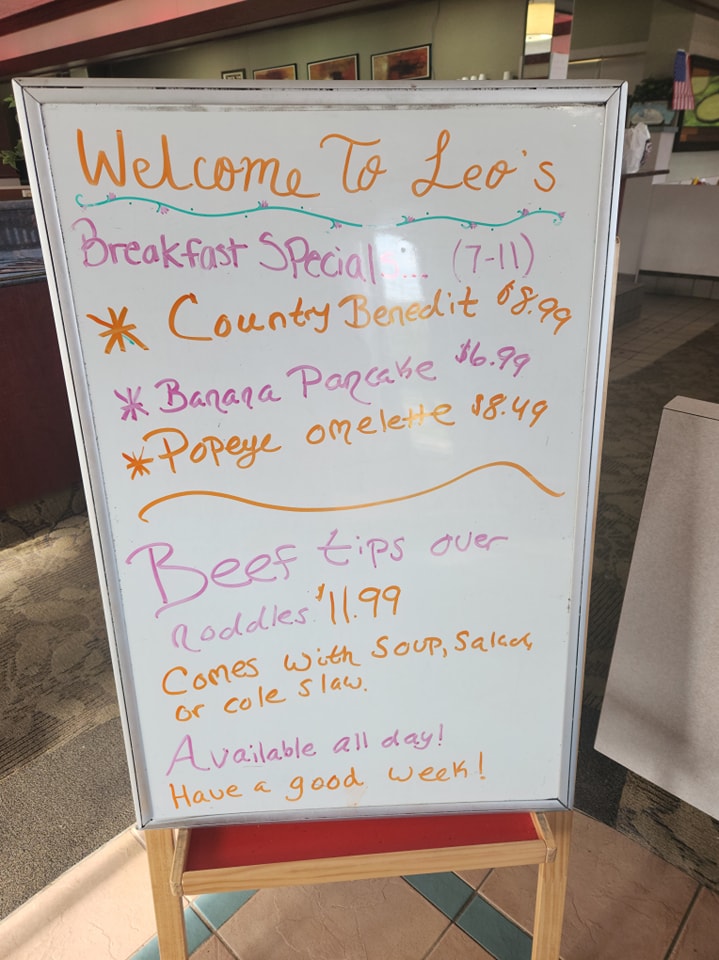 Welcome To Leo's
Breakfast Specials... (7-11)
* Country Benedit $8.99
* Banana Pancake $6.99
* Popeye omelette $8.49
Beef tips over
noddles $11.99
Comes with Soup, Salad,
or cole slaw.
Available all day!
Have a good week!